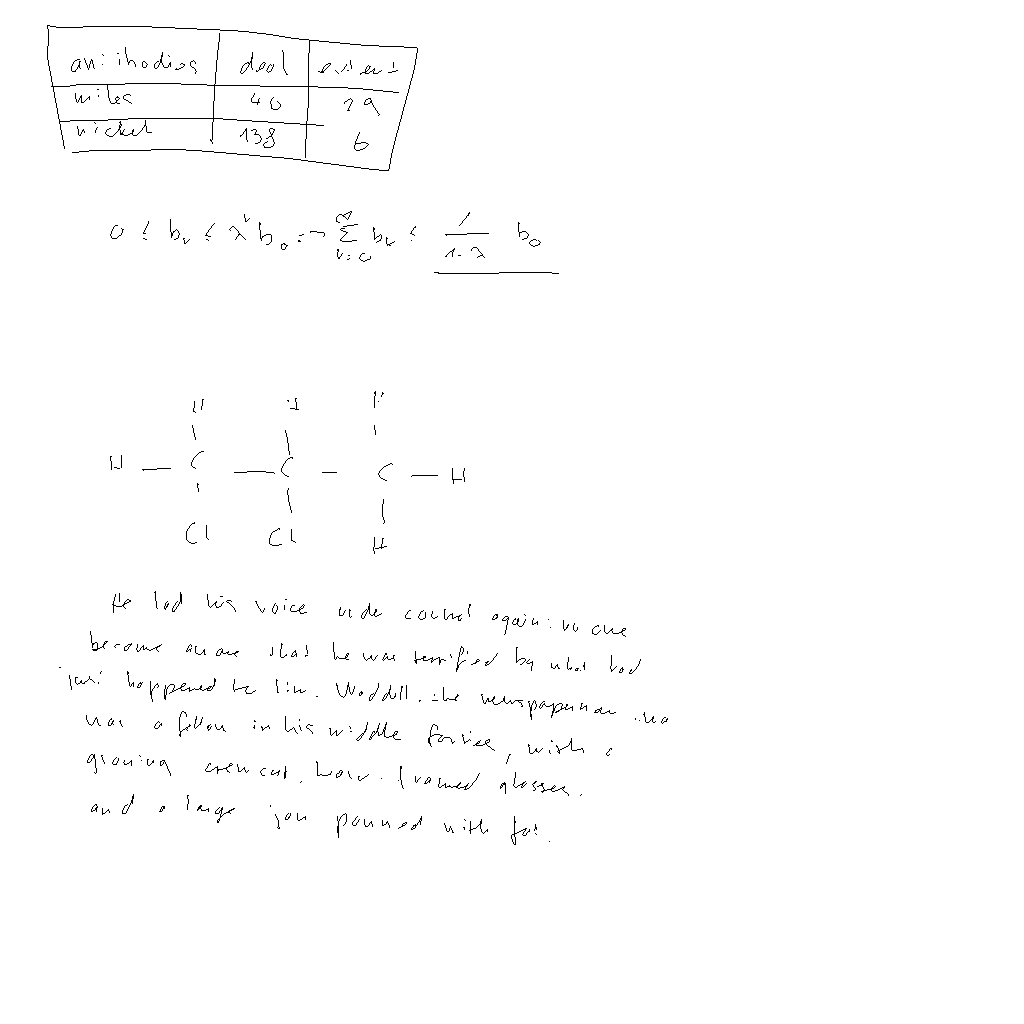 antibodies deal extent
miles 40 29
nickel 138 6
0 ≤ b_k ≤ λ^k b_0 ⇒ ∑_{k=0}^∞ b_k ≤ 1/(1-λ) b_0
H H H
H — C — C — C — H
Cl Cl H
He had his voice under control again: no one
became aware that he was terrified by what had
just happened to him. Waddell, the newspaperman who
was a fellow in his middle forties, with a
growing crewcut, horn-framed glasses,
and a large jaw panned with fat.